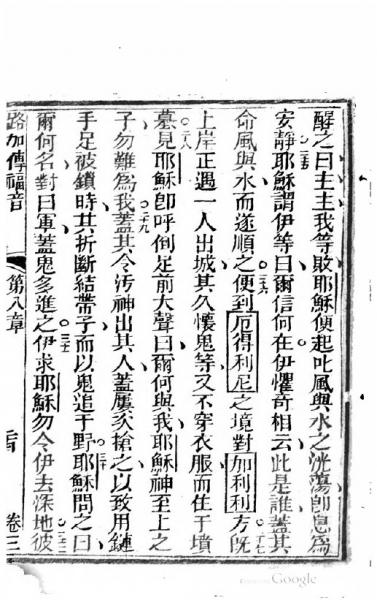 醒之曰主主我等敗耶穌便起叱風與水之洸蕩卽息爲
安靜耶穌謂伊等曰爾信何在伊懼奇相云此是誰蓋其
命風與水而遂順之便到厄得利尼之境對加利利方旣
上岸正遇一人出城其久懷鬼等又不穿衣服而住于墳
墓見耶穌卽呼倒足前大聲曰爾何與我耶穌神至上之
子勿難爲我蓋其令汚神出其人蓋屢次搶之以致用鏈
手足被鎖時其折斷結帶子而以鬼追于野耶穌問之曰
爾何名對曰軍蓋鬼多進之伊求耶穌勿令伊去深地彼
路加傳福音 第八章 卷三
Google